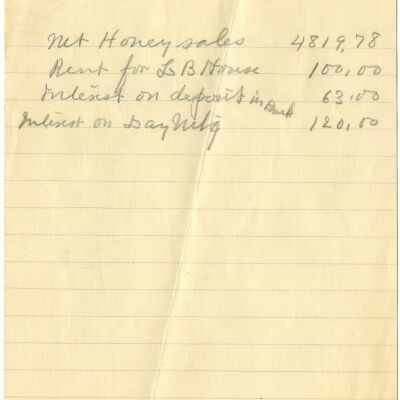 Net Honey sales 4819,78
Rent for L B House 100,00
Interest on deposit in Bank 63,00
Interest on Day Mtg 120,00